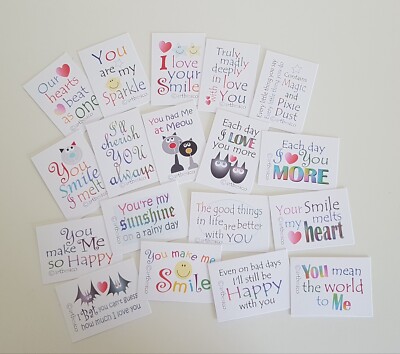 Our
hearts
beat
as
one
You
are my
Sparkle
I love
your
Smile
Truly
madly
deeply
in love
with You
Contains
Magic
and
Pixie
Dust
You
Smile
I melt
I'll
cherish
YOU
always
You had Me
at
Meow
Each day
I LOVE
you more
Each day
I You
MORE
You
make Me
so Happy
You're my
sunshine
on a rainy day
The good things
in life are
better
with YOU
Your Smile
melts
my heart
I Bat you can't guess
how much I love you
You make me
Smile
Even on bad days
I'll still be
Happy
with you
You mean
the world
to Me